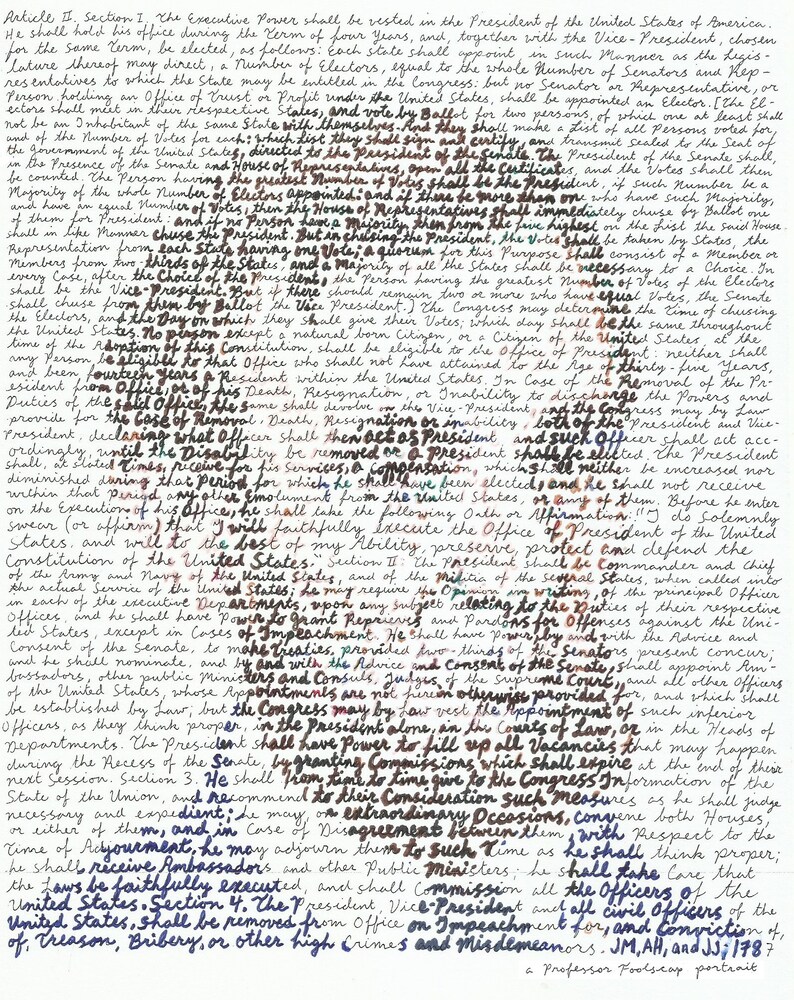 Article II. Section I. The Executive Power shall be vested in the President of the United States of America.
He shall hold his office during the Term of four Years, and, together with the Vice-President, chosen
for the Same Term, be elected, as follows: Each state shall appoint, in such Manner as the Legis-
lature thereof may direct, a Number of Electors, equal to the whole Number of Senators and Rep-
resentatives to which the State may be entitled in the Congress: but no Senator or Representative, or
Person holding an Office of Trust or Profit under the United States, shall be appointed an Elector. [The El-
ectors shall meet in their respective States, and vote by Ballot for two persons, of which one at least shall
not be an Inhabitant of the same State with themselves. And they shall make a List of all Persons voted for,
and of the Number of Votes for each: which List they shall sign and certify, and transmit sealed to the Seat of
the Government of the United States, directed to the President of the Senate. The President of the Senate shall,
in the Presence of the Senate and House of Representatives, open all the Certificates, and the Votes shall then
be counted. The Person having the greatest Number of Votes shall be the President, if such Number be a
Majority of the whole Number of Electors appointed: and if there be more than one who have such Majority,
and have an equal Number of Votes, then the House of Representatives shall immediately chuse by Ballot one
of them for President: and if no Person have a Majority, then from the five highest on the List the said House
shall in like Manner chuse the President. But in chusing the President, the Votes shall be taken by States, the
Representation from each State having one Vote; a quorum for this Purpose shall consist of a Member or
Members from two-thirds of the States, and a Majority of all the States shall be necessary to a Choice. In
every Case, after the Choice of the President, the Person having the greatest Number of Votes of the Electors
shall be the Vice-President. But if there should remain two or more who have equal Votes, the Senate
shall chuse from them by Ballot the Vice President.] The Congress may determine the Time of chusing
the Electors, and the Day on which they shall give their Votes; which day shall be the same throughout
the United States. No person except a natural born Citizen, or a Citizen of the United States, at the
time of the Adoption of this Constitution, shall be eligible to the Office of President: neither shall
any Person be eligible to that Office who shall not have attained to the Age of thirty-five Years,
and been fourteen Years a Resident within the United States. In Case of the Removal of the Pr-
esident from Office, or of his Death, Resignation, or Inability to discharge the Powers and
Duties of the said Office, the same shall devolve on the Vice-President, and the Congress may by Law
provide for the Case of Removal, Death, Resignation or inability, both of the President and Vice-
President, declaring what Officer shall then act as President, and such Officer shall act acc-
ordingly, until the Disability be removed or a President shall be elected. The President
shall, at stated Times, receive for his Services, a compensation, which shall neither be increased nor
diminished during that Period for which he shall have been elected, and he shall not receive
within that Period any other Emolument from the United States, or any of them. Before he enter
on the Execution of his Office, he shall take the following Oath or Affirmation: "I do Solemnly
swear (or affirm) that I will faithfully execute the Office of President of the United
States, and will to the best of my Ability, preserve, protect and defend the
Constitution of the United States." Section II: The President shall be Commander and Chief
of the Army and Navy of the United States, and of the Militia of the several States, when called into
the actual Service of the United States; he may require the Opinion in writing, of the principal Officer
in each of the executive Departments, upon any subject relating to the Duties of their respective
Offices, and he shall have Power to Grant Reprieves and Pardons for Offenses against the Uni-
ted States, except in Cases of Impeachment. He shall have Power, by and with the Advice and
Consent of the Senate, to make Treaties, provided two-thirds of the Senators present concur;
and he shall nominate, and by and with the Advice and Consent of the Senate, shall appoint Am-
bassadors, other public Ministers and Consuls, Judges of the Supreme Court, and all other Officers
of the United States, whose Appointments are not herein otherwise provided for, and which shall
be established by Law; but the Congress may by Law vest the Appointment of such inferior
Officers, as they think proper, in the President alone, in the Courts of Law, or in the Heads of
Departments. The President shall have Power to fill up all Vacancies that may happen
during the Recess of the Senate, by granting Commissions which shall expire at the end of their
next Session. Section 3. He shall from time to time give to the Congress Information of the
State of the Union, and recommend to their Consideration such Measures as he shall judge
necessary and expedient; he may, on extraordinary Occasions, convene both Houses,
or either of them, and in Case of Disagreement between them, with Respect to the
Time of Adjourment, he may adjourn them to such Time as he shall think proper;
he shall receive Ambassadors and other Public Ministers; he shall take Care that
the Laws be faithfully executed, and shall Commission all the Officers of the
United States. Section 4. The President, Vice-President and all civil Officers of the
United States, shall be removed from Office on Impeachment for, and Conviction of,
of, Treason, Bribery, or other high Crimes and Misdemeanors. JM, AH, and JJ, 1787
a Professor Foolscap portrait